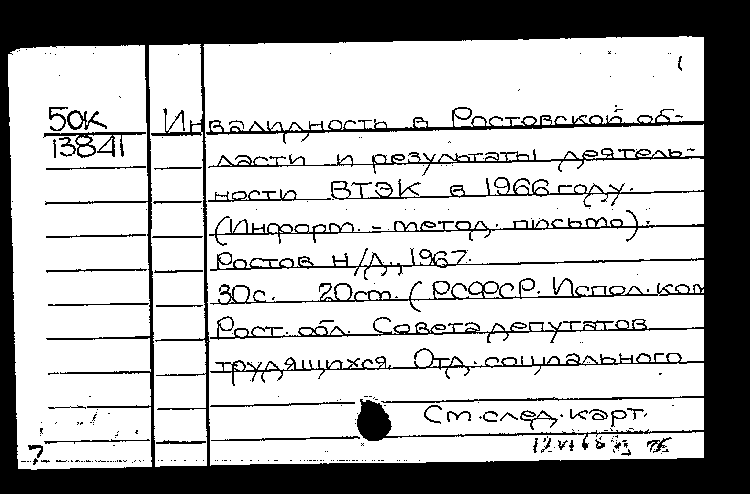 1
50К Инвалидность в Ростовской об-
13841 ласти и результаты деятель-
ности ВТЭК в 1966 году.
(Информ.-метод. письмо).
Ростов н/Д., 1967.
30с. 20см. (РСФСР. Испол.ком
Рост. обл. Совета депутатов
трудящихся. Отд. социального
См.след.карт.
7